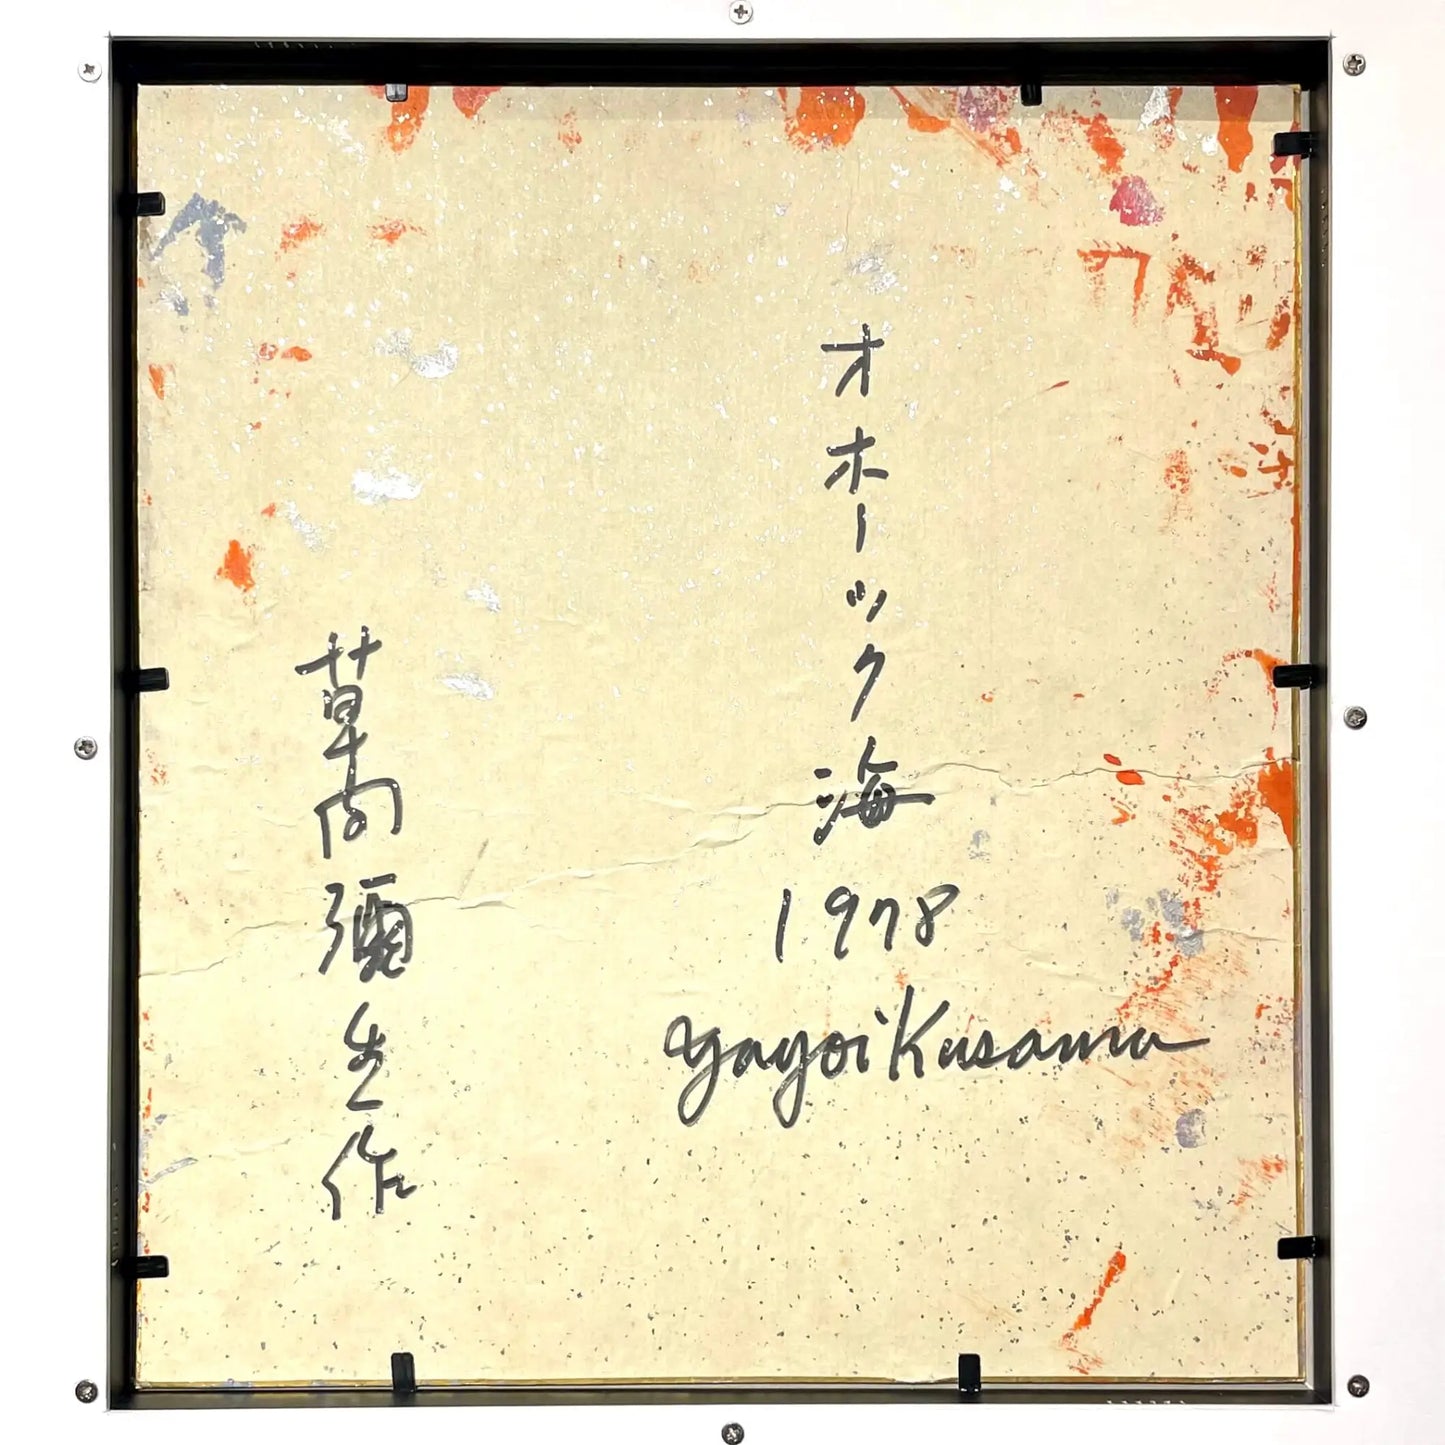 オホーツク海
1978
Yayoi Kusama
草間彌生作